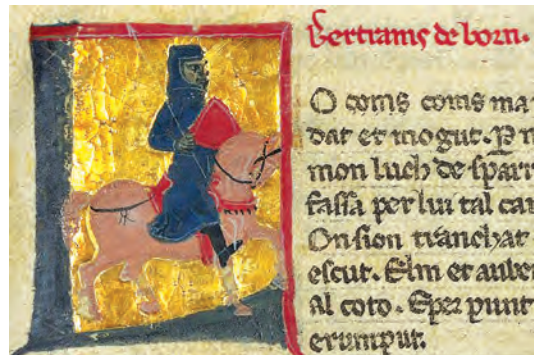 Bertrams de born.
O coms coms ma
dat et mogut. ꝑ
mon luch de sparr
fassa per lui tal
Onsion tranchat
escut. Elm et auber
Al coto. Eper punt
erumput.